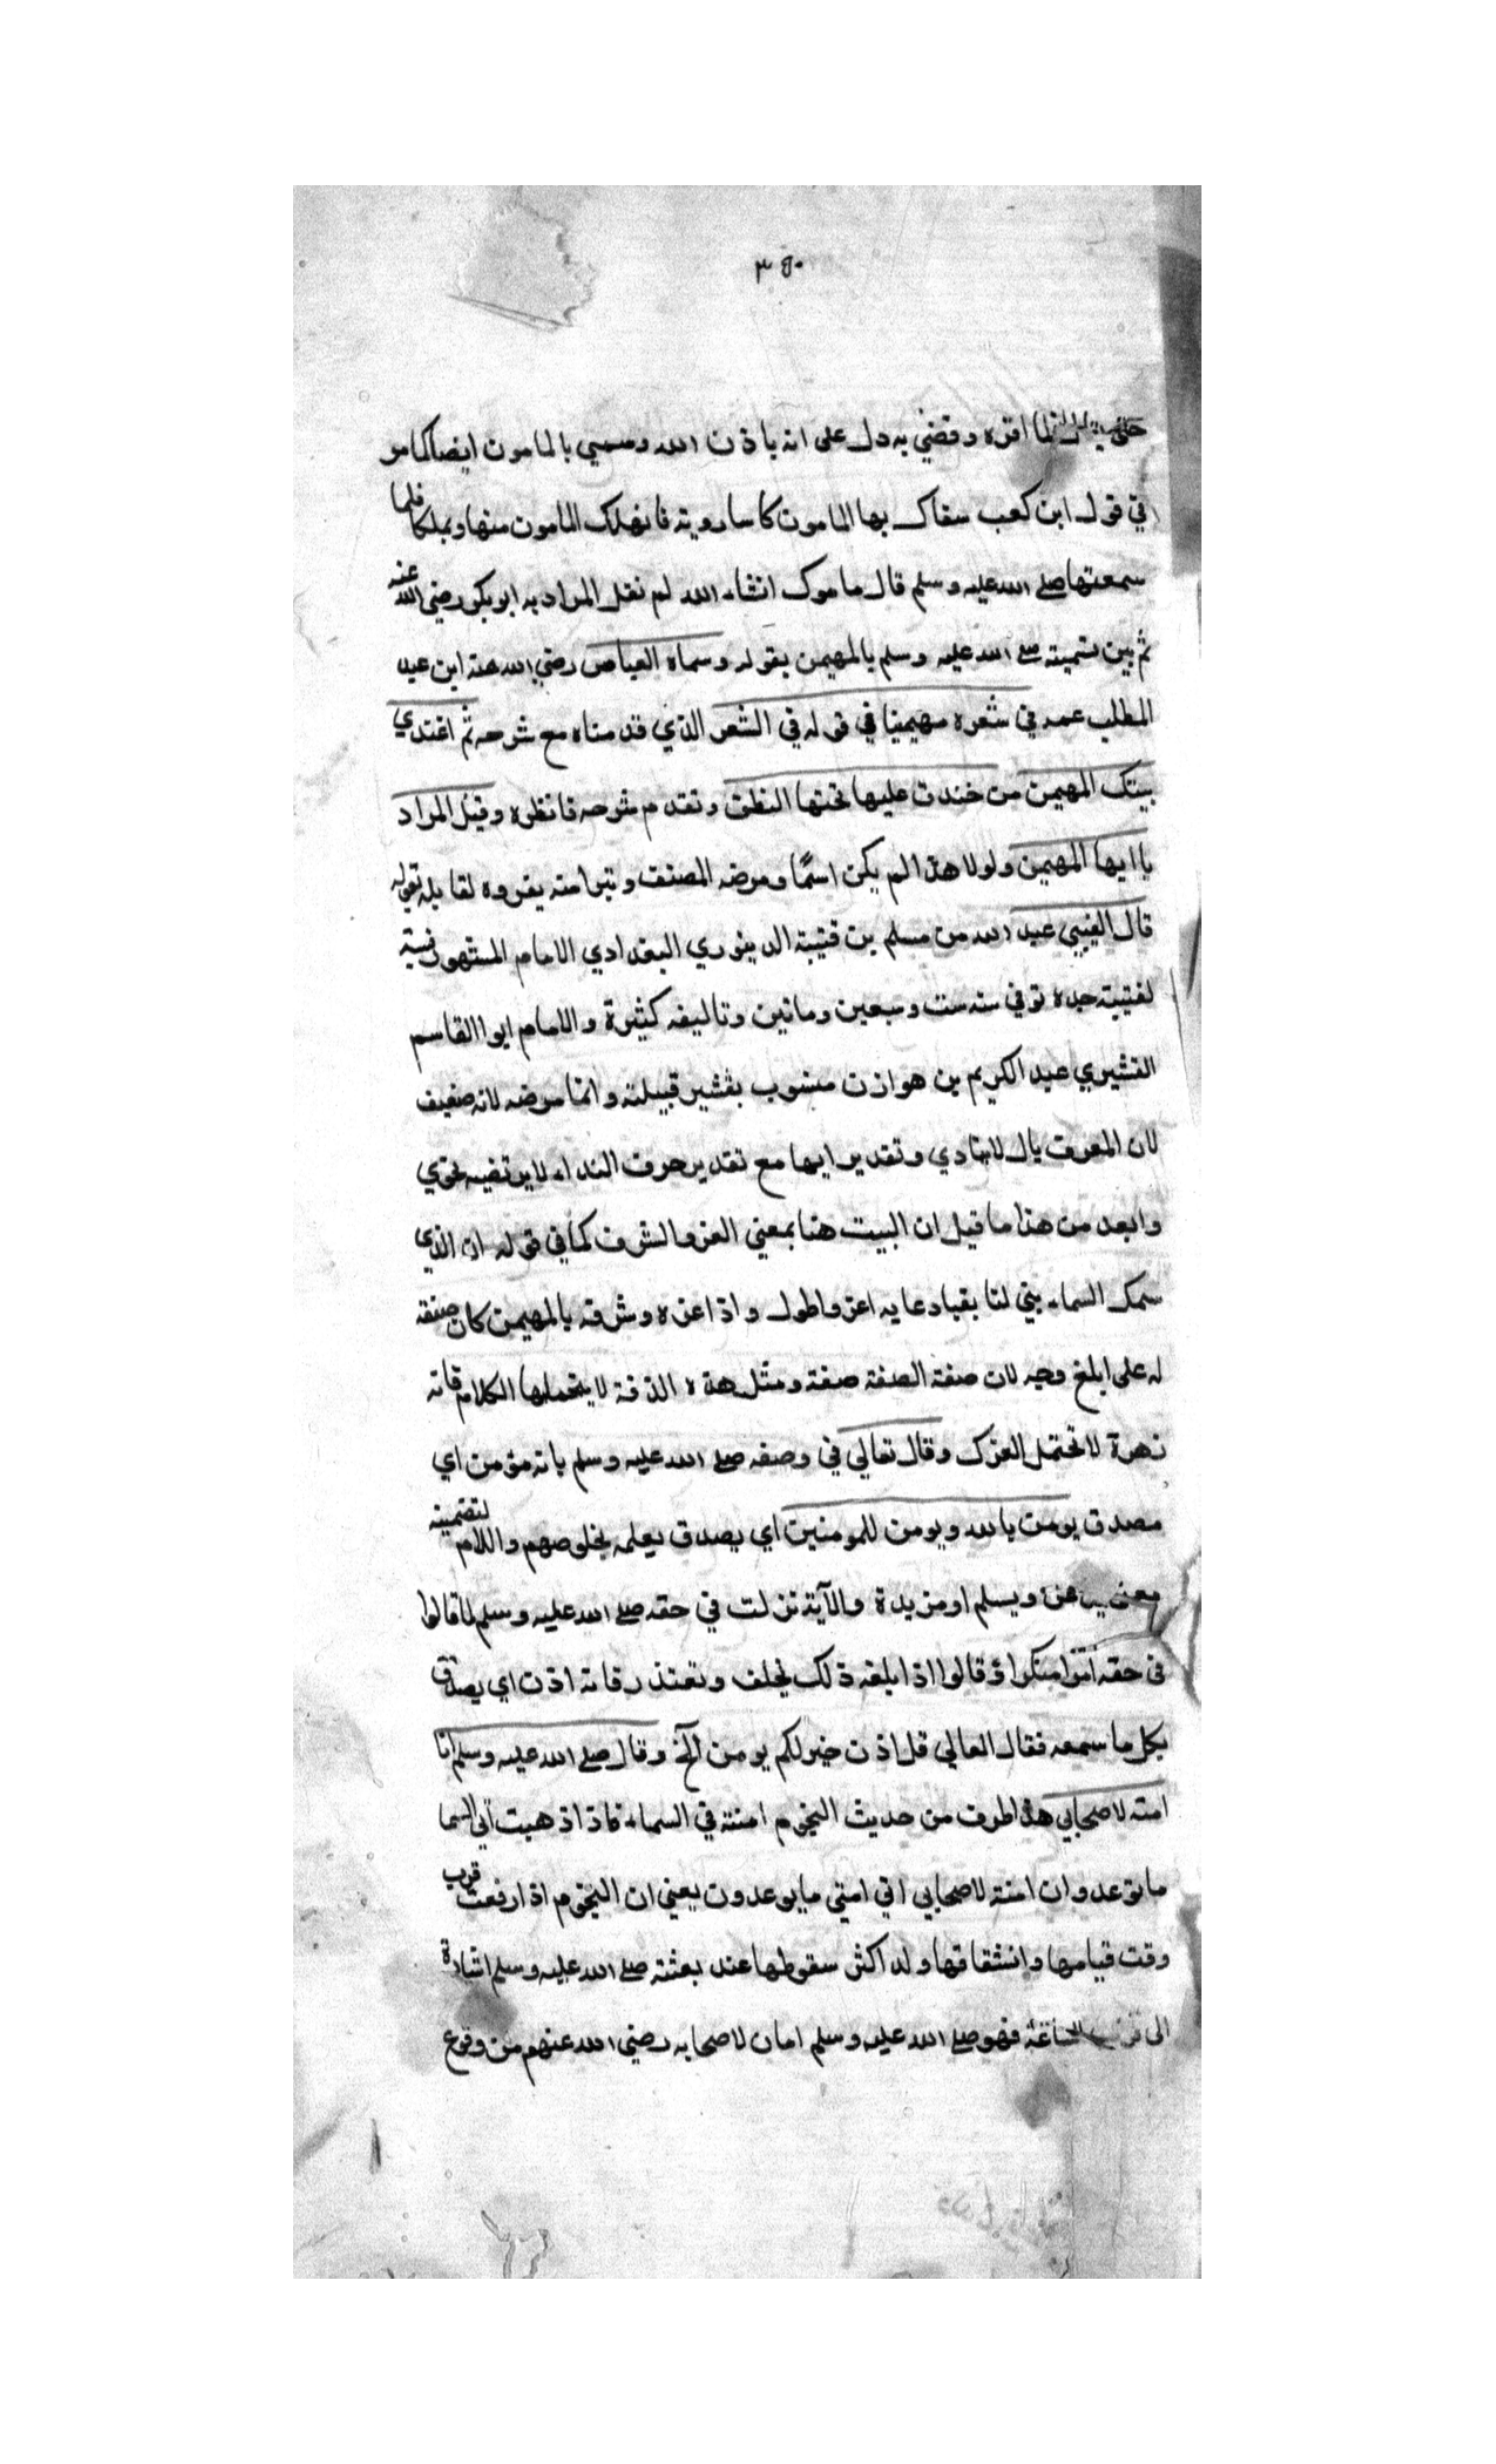 ٣٤٠
فما اقره وقضي به دل على انه باذن الله وسمي بالمامون ايضا كما مر
في قول ابن كعب سقاك بها المامون كاسا روية فانهلك المامون منها وعلكا فلما
سمعتها صلے الله عليه وسلم قال مامون انشاء الله لم نقل المراد به ابو بكر رضي الله عنه
ثم بين تسميته صلے الله عليه وسلم بالمهيمن بقوله وسماه العباس رضي الله عنه ابن عبد
المطلب عمه في شعره مهيمنا في قوله في الشعر الذي قدمناه مع شرحه ثم اغتدي
بيتك المهيمن من خندق عليها تحتها النطق وتقدم شرحه فانظره وقيل المراد
يا ايها المهيمن ولولا هذا لم يكن اسمًا ومرضه المصنف وتبرا منه بعزوه لقايله بقوله
قال القتيبي عبد الله من مسلم بن قتيبة الدينوري البغدادي الامام المشهور نسبة
لقتيبة جده توفي سنه ست وسبعين وماتين وتاليفه كثيرة والامام ابوا القاسم
القشيري عبد الكريم بن هوازن منسوب بقشير قبيلته وانما مرضه لانه ضعيف
لان المعرف بال لاينادي وتقدير ايها مع تقدير حرف النداء لايرتضيه نحوي
وابعد من هذا ما قيل ان البيت هنا بمعني العز والشرف كما في قوله ان الذي
سمك السماء بني لنا بقبا دعايه اعز واطول واذا عزه وشرفه بالمهيمن كان صفة
له على ابلغ وجه لان صفة الصفة صفة ومثل هذه الدقة لا يتحملها الكلام فانه
زهرة لا تحتمل العرك وقال تعالي في وصفه صلے الله عليه وسلم بانه مؤمن اي
مصدق يومن بالله ويومن للمومنين اي يصدق بعلمه بخلوصهم واللام لتضمينه
معنى ويسلم او مزيدة والآية نزلت في حقه صلے الله عليه وسلم لما قالوا
في حقه وقالوا اذا بلغه ذلك نحلف ونعتذر فانه اذن اي يصدق
بكل ما سمعه فقال العالي قل اذن خير لكم يومن آلخ وقال صلے الله عليه وسلم انا
امنة لاصحابي هذا طرف من حديث النجوم امنة في السماء فاذا ذهبت اتي السما
ما توعد وان امنة لاصحابي اتي امتي ما يوعدون يعني ان النجوم اذا رفعت قرب
وقت قيامها وانشقاقها ولذا كثر سقوطها عند بعثته صلے الله عليه وسلم اشارة
الى قرب الساعة فهو صلے الله عليه وسلم امان لاصحابه رضي الله عنهم من وقوع